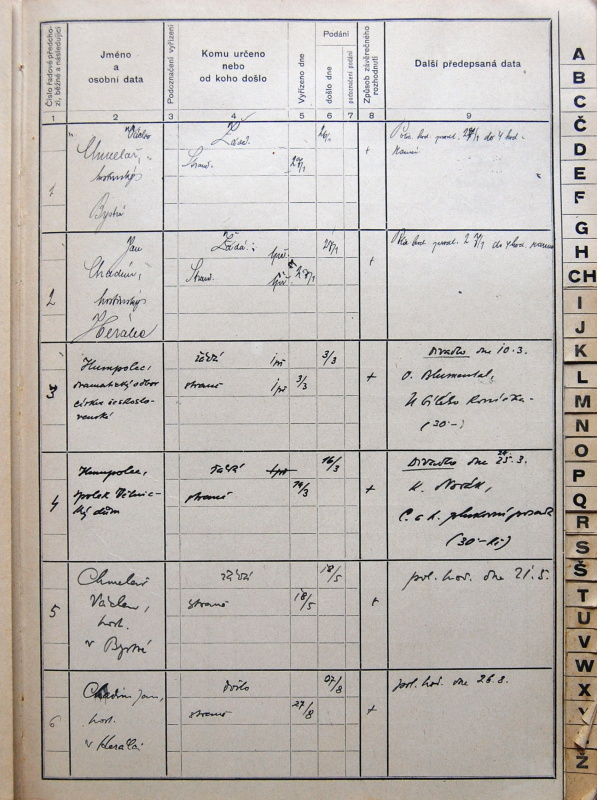 Číslo řadové předcho-
zí, běžné a následující
Jméno
a
osobní data
Podoznačení vyřízení
Komu určeno
nebo
od koho došlo
Vyřízeno dne
Podání
došlo dne
podoznačení podání
Způsob závěrečného
rozhodnutí
Další předepsaná data
1 2 3 4 5 6 7 8 9
1
Václav
Chmelař,
hostinský
Bystrá
Žádá.
Stran.
26/1
27/1
+
27/1 do 4 hod.
ranní
2
Jan
Chadim,
hostinský
Herálec
Žádá.
Stran.
27/1
27/1
+
27/1 do 4 hod. ranní
3
Humpolec,
dramatický odbor
církve českoslo-
venské
žádá
straně
3/3
3/3
+
Divadlo dne 10.3.
O. Blumental,
U bílého koníčka -
(30.-)
4
Humpolec,
spolek Dělnic-
ký dům
žádá
straně
16/3
+
Divadlo dne 25.3.
K. Novák,
C. a k.
(30.- Kč)
5
Chmelař
Václav,
host.
v Bystré
žádá
straně
18/5
18/5
+
pol. hod. dne 21.5.
6
Chadim Jan,
host.
v Herálci
došlo
straně
27/8
+
pol. hod. dne 26.8.
A
B
C
Č
D
E
F
G
H
CH
I
J
K
L
M
N
O
P
Q
R
S
Š
T
U
V
W
X
Y
Ž